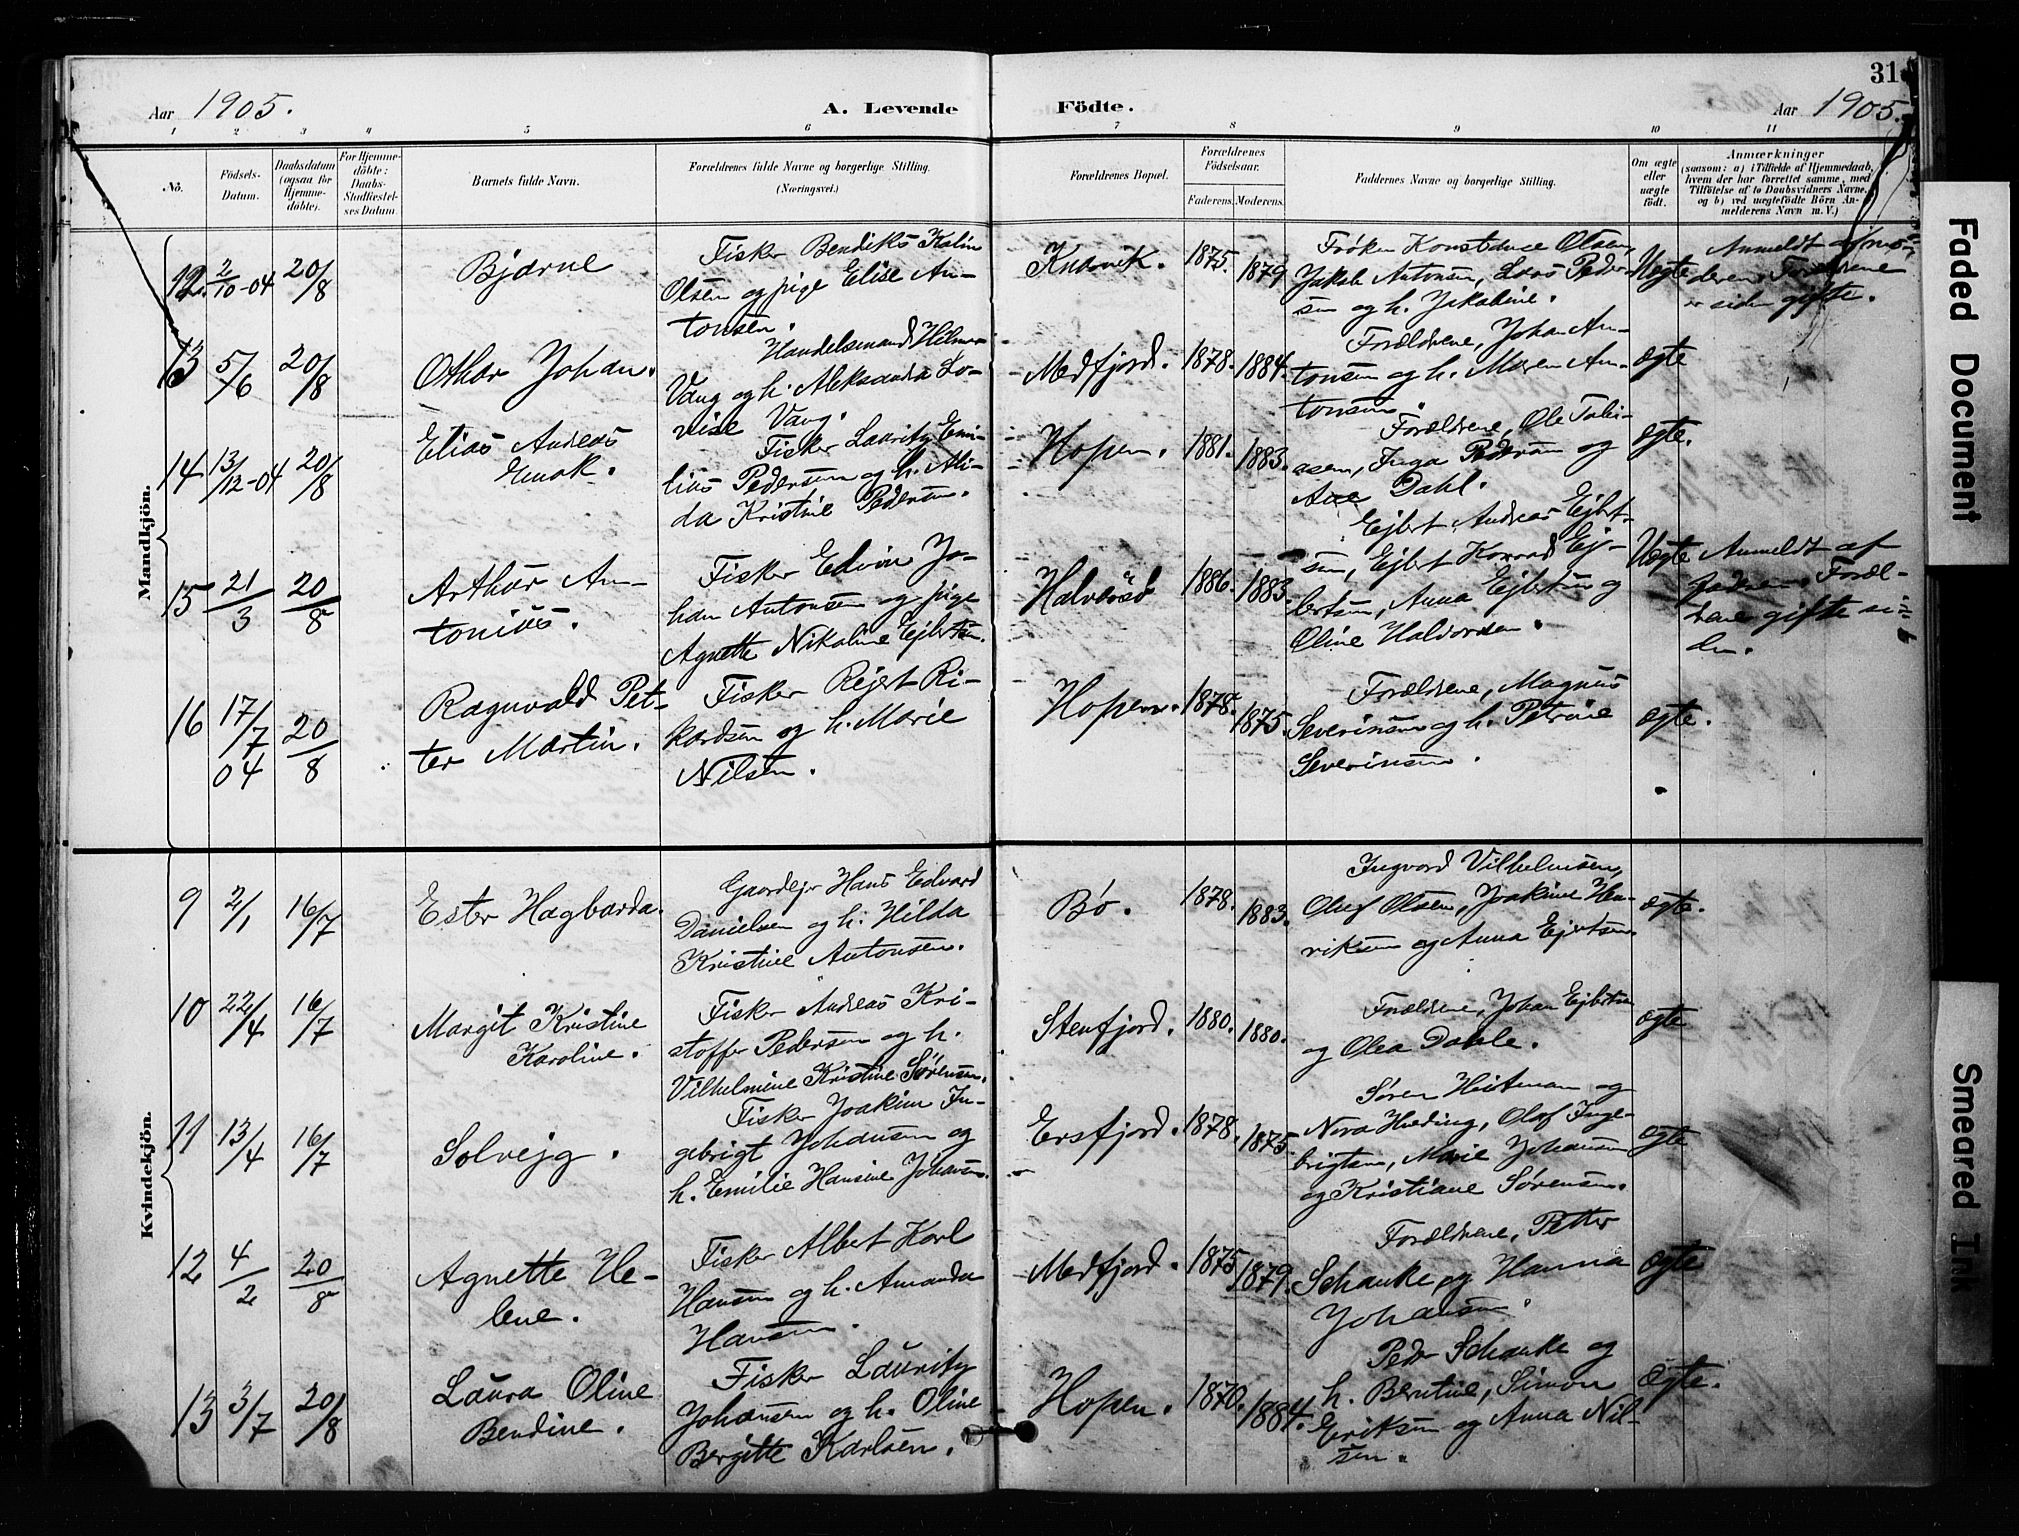 31
Aar 1905. A. Levende Födte. Aar 1905.
1 2 3 4 5 6 7 8 9 10 11
No.
Födsels-
Datum.
Daabsdatum
(ogsaa for
Hjemme-
döbte).
For Hjemme-
döbte:
Daabs-
Stadfæstel-
ses Datum.
Barnets fulde Navn.
Forældrenes fulde Navne og borgerlige Stilling.
(Næringsvei.)
Forældrenes Bopæl.
Forældrenes
Födselsaar.
Faderens. Moderens.
Faddernes Navne og borgerlige Stilling.
Om ægte
eller
uægte
födt.
Anmærkninger
(saasom: a) i Tilfælde af Hjemmedaab,
hvem der har forrettet samme, med
Tilföielse af to Daabsvidners Navne,
og b) ved uægtefödte Börn An-
melderens Navn m. V.)
Mandkjön.
12. 2/10-04 20/8
Bjarne
Fisker Bendiks Kalin
Olsen og pige Elise An-
tonsen.
1875. 1879
Frøken Konstanse Olsen,
Jakob Antonsen, Lars Peder-
sen og h. Jakobine.
Uegte
Anmeldt af mo-
deren. Forældrene
er siden gifte.
13 5/6 20/8
Othar Johan.
Handelsmand Hilmar
Vang og h. Aleksandra Lo-
vise Vang.
Medfjord. 1878. 1884.
Forældrene, Johan An-
tonsen og h. Maren An-
tonsen.
ægte
14 13/12-04 20/8
Elias Andreas
Enok.
Fisker Lauritz Emi-
lius Pedersen og h. Ali-
da Kristine Pedersen.
Hopen. 1881. 1883.
Forældrene, Ole Tobi-
asen, Inga Pedersen og
Ane Dahl.
ægte.
15 21/3 20/8
Arthur An-
tonius.
Fisker Edvin Jo-
han Antonsen og pige
Agnette Nikoline Ejbertsen.
1886. 1883.
Ejbert Andreas Ejbert-
sen, Ejbert Konrad Ej-
bertsen, Anna Ejbertsen og
Oline Halvorsen.
Uegte
Anmeldt af
faderen. Foræl-
drene gifte si-
den.
16 17/7 04 20/8
Ragnvald Pet-
ter Martin.
Fisker Rejert Ri-
kardsen og h. Marie
Nilsen.
Hopen. 1878. 1875.
Forældrene, Magnus
Severinsen og h. Petrine
Severinsen.
ægte.
Kvindekjön.
9 2/1 16/7
Ester Hagbarda.
Gaardejer Hans Edvard
Danielsen og h. Hilda
Kristine Antonsen.
Bø. 1878. 1883.
Ingvard Vilhelmsen,
Oluf Olsen, Joakine Hen-
riksen og Anna Ejertsen.
ægte.
10 22/4 16/7
Margit Kristine
Karoline.
Fisker Andreas Kri-
stoffer Pedersen og h.
Vilhelmine Kristine Sørensen.
Stenfjord. 1880. 1880.
Forældrene, Johan Ejbertsen
og Olea Dahle.
ægte
11 13/4 16/7
Solvejg.
Fisker Joakim In-
gebrigt Johansen og
h. Emilie Hansine Johansen.
Ersfjord. 1878. 1875.
Søren Heitman og
Nora Hveding, Olaf Inge-
brigtsen, Marie Johansen
og Kristiane Sørensen.
ægte
12 4/2 20/8
Agnette He-
lene.
Fisker Albert Karl
Hansen og h. Amanda
Hansen.
Medfjord. 1875 1879.
Forældrene, Petter
Schanke og Hanna
Johansen.
ægte
13 3/7 20/8
Laura Oline
Bendine.
Fisker Lauritz
Johansen og h. Oline
Bergitte Karlsen.
Hopen. 1870. 1884.
Peder Schanke og
h. Berntine, Simon
Eriksen og Anna Nil-
sen.
ægte.
Faded Document
Smeared Ink